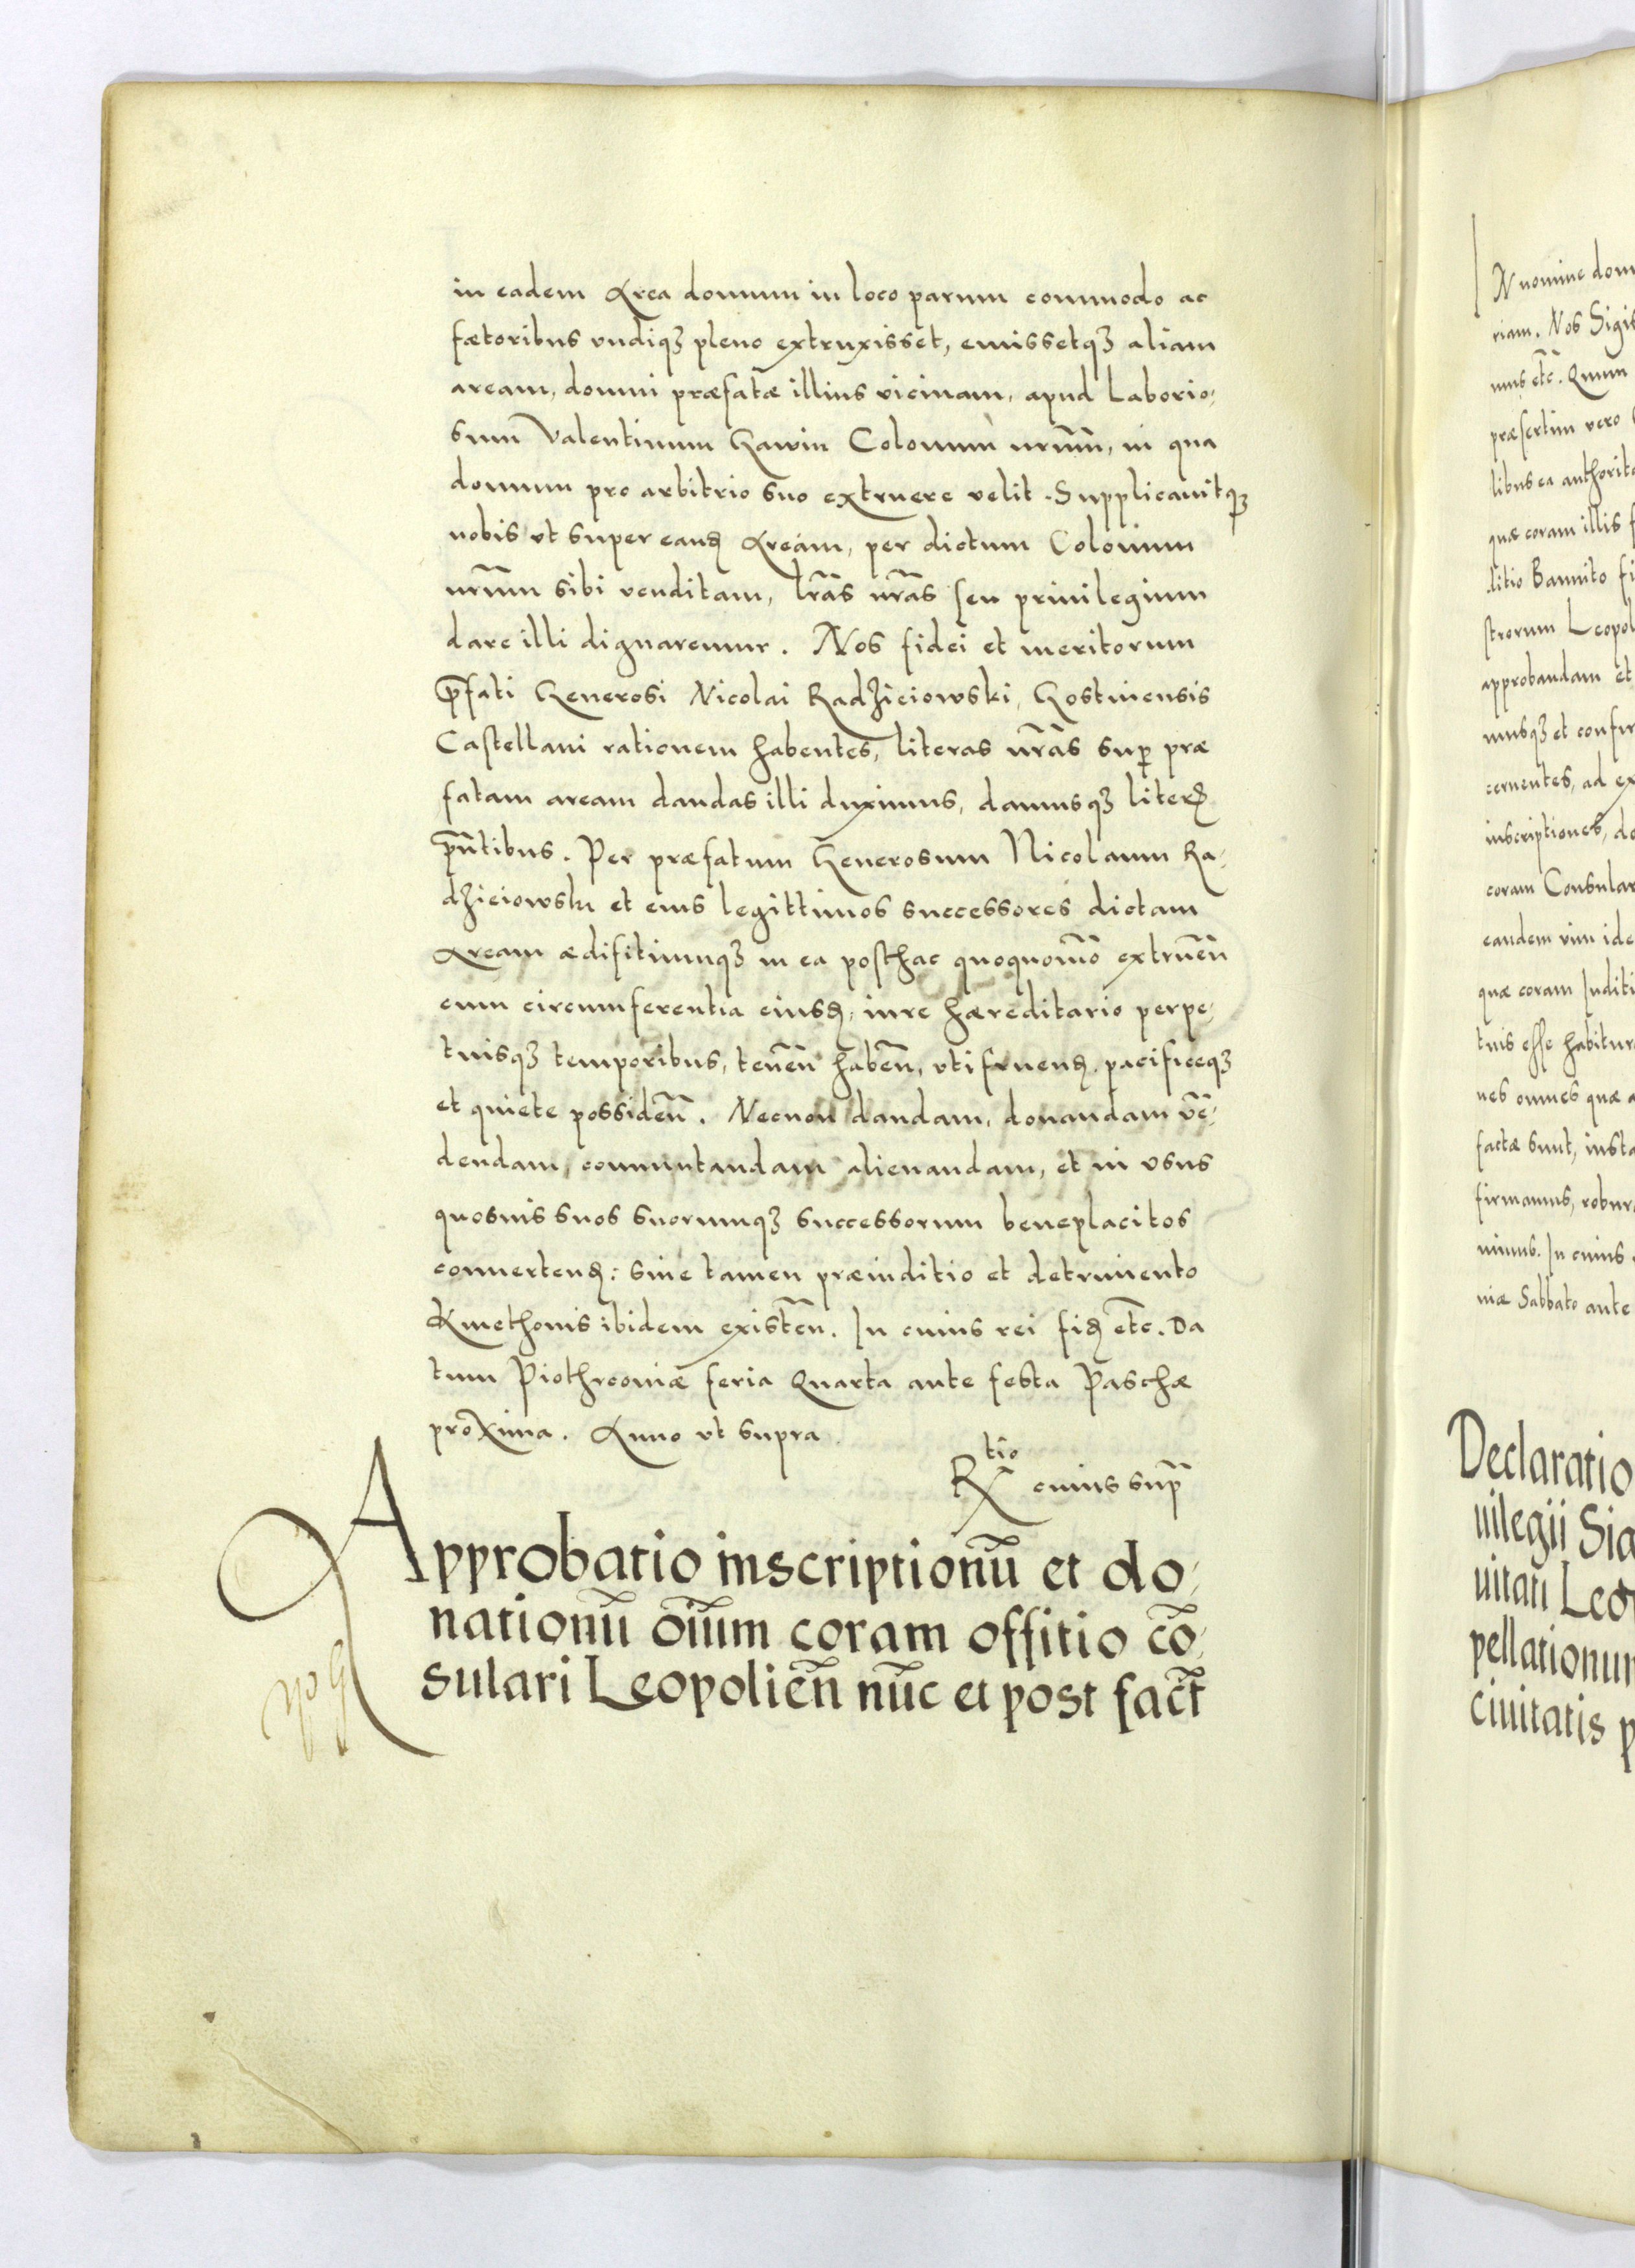 in eadem Area domum in loco parum commodo ac
fætoribus vndiqꝫ pleno extruxisset, emissetqꝫ aliam
aream, domui præfatæ illius vicinam, apud Laborio,
sum Valentinum Gawin Colonum nr̃um, in qua
domum pro arbitrio suo extruere velit. Supplicauitqꝫ
nobis vt super eandꝫ Aream, per dictum Colonum
nr̃um sibi venditam, lr̃as nr̃as seu priuilegium
dare illi dignaremur. Nos fidei et meritorum
p̃fati Generosi Nicolai Radziciowski, Gostinensis
Castellani rationem habentes, literas nr̃as sup̱ præ
fatam aream dandas illi duximus, damusqꝫ literꝭ
p̃ñtibus. Per præfatum Generosum Nicolaum Ra,
dziciowski et eius legittimos successores dictam
Aream ædifitiumqꝫ in ea posthac quoquom̃o extrueñ
cum circumferentia eiusdꝫ, iure hæreditario perpe,
tuisqꝫ temporibus, teneñ habeñ, vti fruendꝫ. pacificeqꝫ
et quiete possideñ. Necnon dandam, donandam vẽ,
dendam, commutandam alienandam, et in vsus
quosuis suos suorumqꝫ successorum beneplacitos
conuertendꝫ: sine tamen præiuditio et detrimento
Kmethonis ibidem existeñ. In cuius rei fidꝫ etc̃. Da
tum Piothrcouiæ feria Quarta ante festa Paschæ
proxima. Anno vt supra
Rtio cuius sup̃
Approbatio inscriptionũ et do,
nationũ oĩum coram offitio cõ,
sulari Leopolieñ nũc et post fact̃
N nomine dom
riam. Nos Sigis
mus etc̃. Quum
præsertim vero
libus ea authorita
quæ coram illis f
litio Bannito fi
strorum Leopol
approbandam et
musqꝫ et confir
cernentes, ad ex
inscriptiones, do
coram Consular
eandem vim ide
quæ coram Iuditi
tuis esse habitur
nes omnes quæ a
factæ sunt, iusta
firmamus, robor
nimus. In cuius
niæ Sabbato ante
Declaratio
uilegii Sig
uitati Leop
pellationum
ciuitatis p